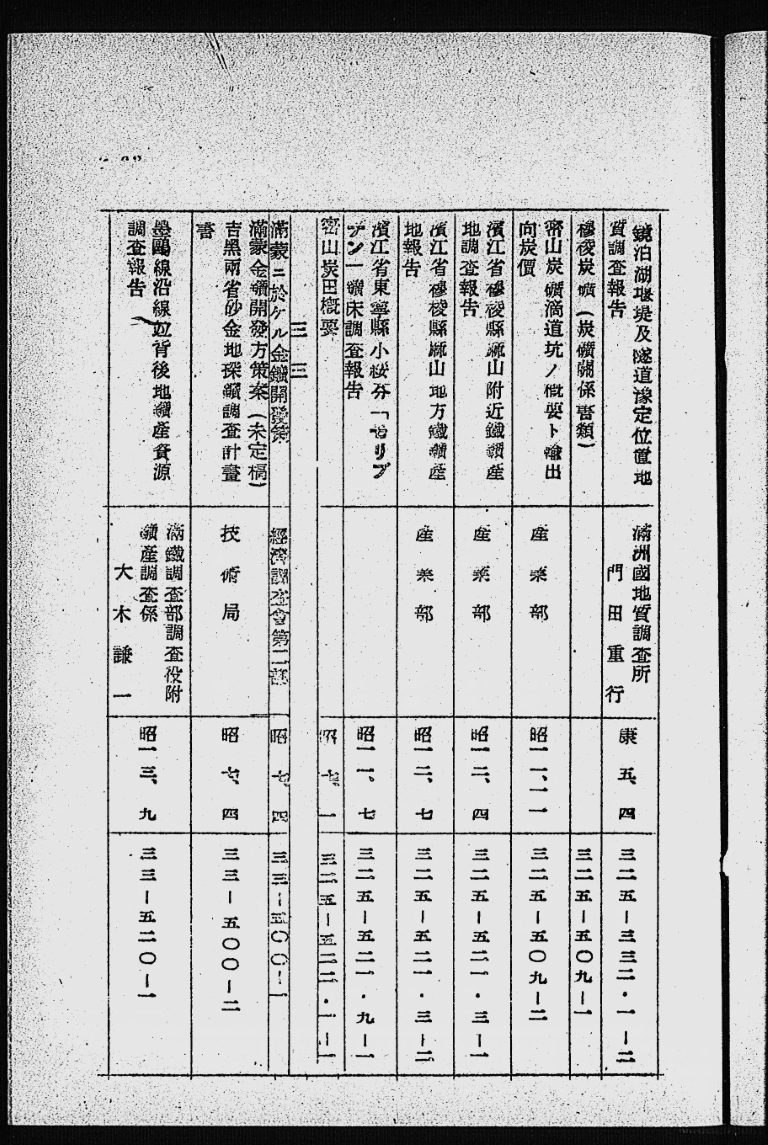 鏡泊湖堰堤及隧道豫定位置地
質調査報告
滿洲國地質調査所
門田重行
康五、四
三二五－三三二・一－二
穆稜炭礦(炭礦關係書類)
三二五－五〇九－一
密山炭礦滴道坑ノ概要ト輸出
向炭價
産業部
昭一一、一一
三二五－五〇九－二
濱江省穆稜縣梨山附近鐵鑛産
地調査報告
産業部
昭一二、四
三二五－五二一・三－一
濱江省穆稜縣梨山地方鐵鑛産
地報告
産業部
昭一二、七
三二五－五二一・三－二
濱江省東寧縣小綏芬「
」鑛床調査報告
昭一一、七
三二五－五二一・九－一
密山炭田概要
昭七、一
三二五－五二二・一－一
三三
滿蒙ニ於ケル金鑛開發策
經濟調査會第二部
昭七、四
三三－五〇〇－一
滿蒙金鑛開發方策案(未定稿)
吉黑兩省砂金地探鑛調査計畫
書
技術局
昭七、四
三三－五〇〇－二
墨鷗線沿線竝背後地鑛產資源
調査報告
滿鐵調査部調査役附
鑛產調査係
大木謙一
昭一三、九
三三－五二〇－一